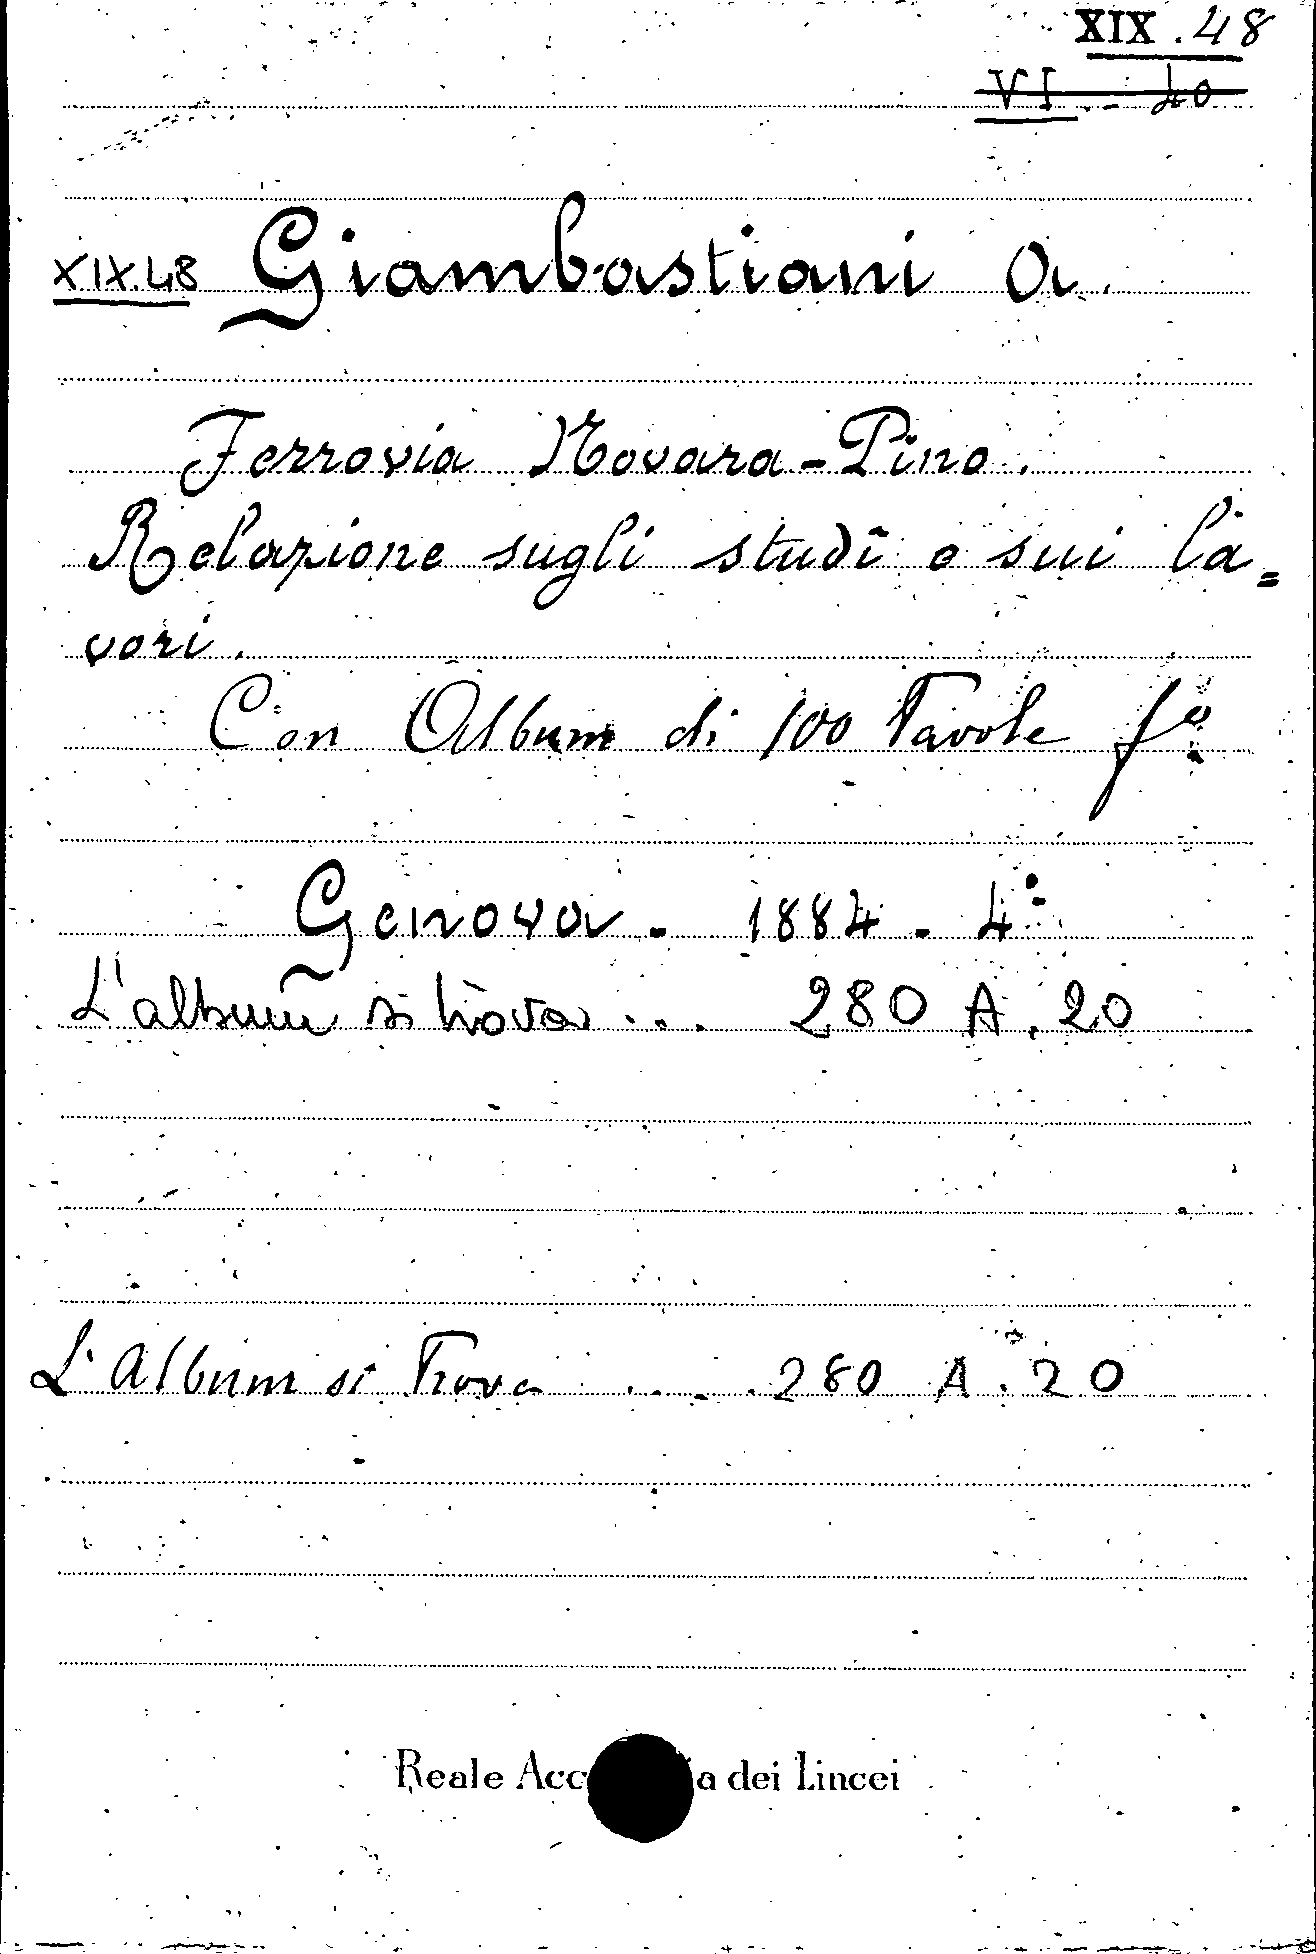 XIX . 48
VI - 40
XIX.48 Giambastiani A.
Ferrovia Novara-Pino.
Relazione sugli studî e sui la=
vori.
Con Album di 100 Tavole fº
Genova - 1884 - 4º
L'album si trova ... 280 A. 20
L'Album si Trova .... 280 A. 20
Reale Acc a dei Lincei